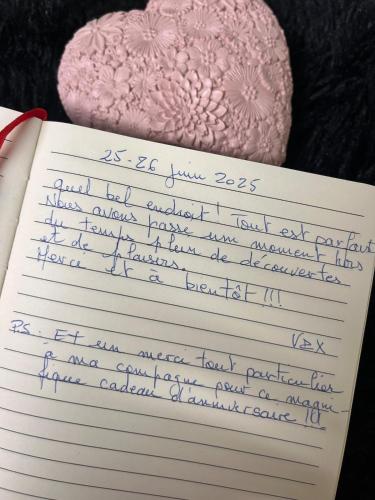 25-26 juin 2025
quel bel endroit ! Tout est parfait
Nous avons passé un moment hors
du temps plein de découvertes
et de plaisirs.
Merci et à bientôt !!!
V&X
PS : Et un merci tout particulier
à ma compagne pour ce magni-
fique cadeau d'anniversaire !!!